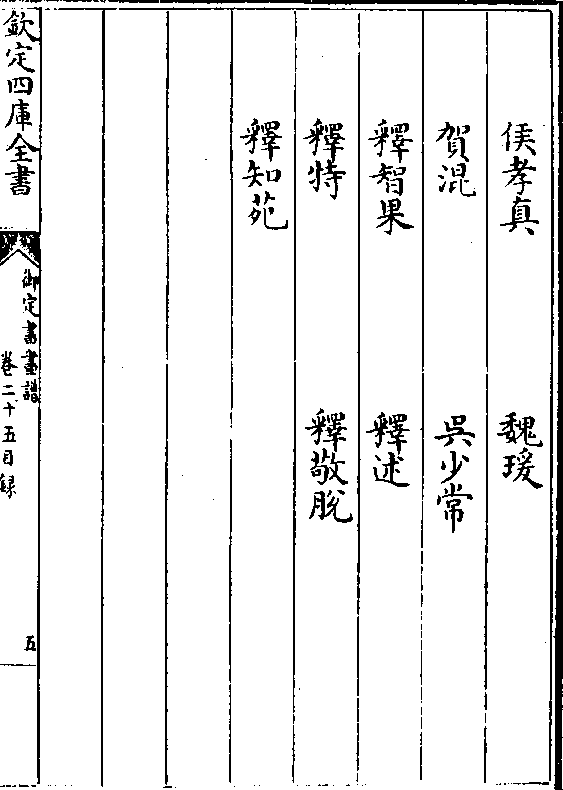 侯孝真　魏瑗
賀混　吳少常
釋智果　釋述
釋特　釋敬脫
釋知苑
欽定四庫全書
御定書畫譜
卷二十五目録
五